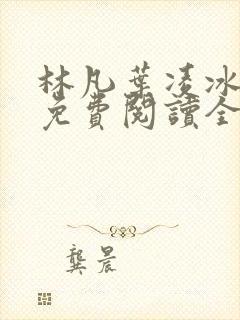 林凡葉凌冰
免費閱讀全
龔晨